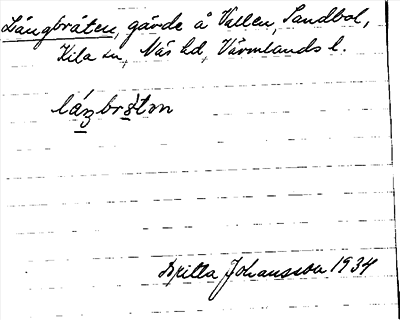 Långbråten, gärde å Vallen, Sandbol,
Kila sn, Näs hd, Värmlands l.
Britta Johansson 1934